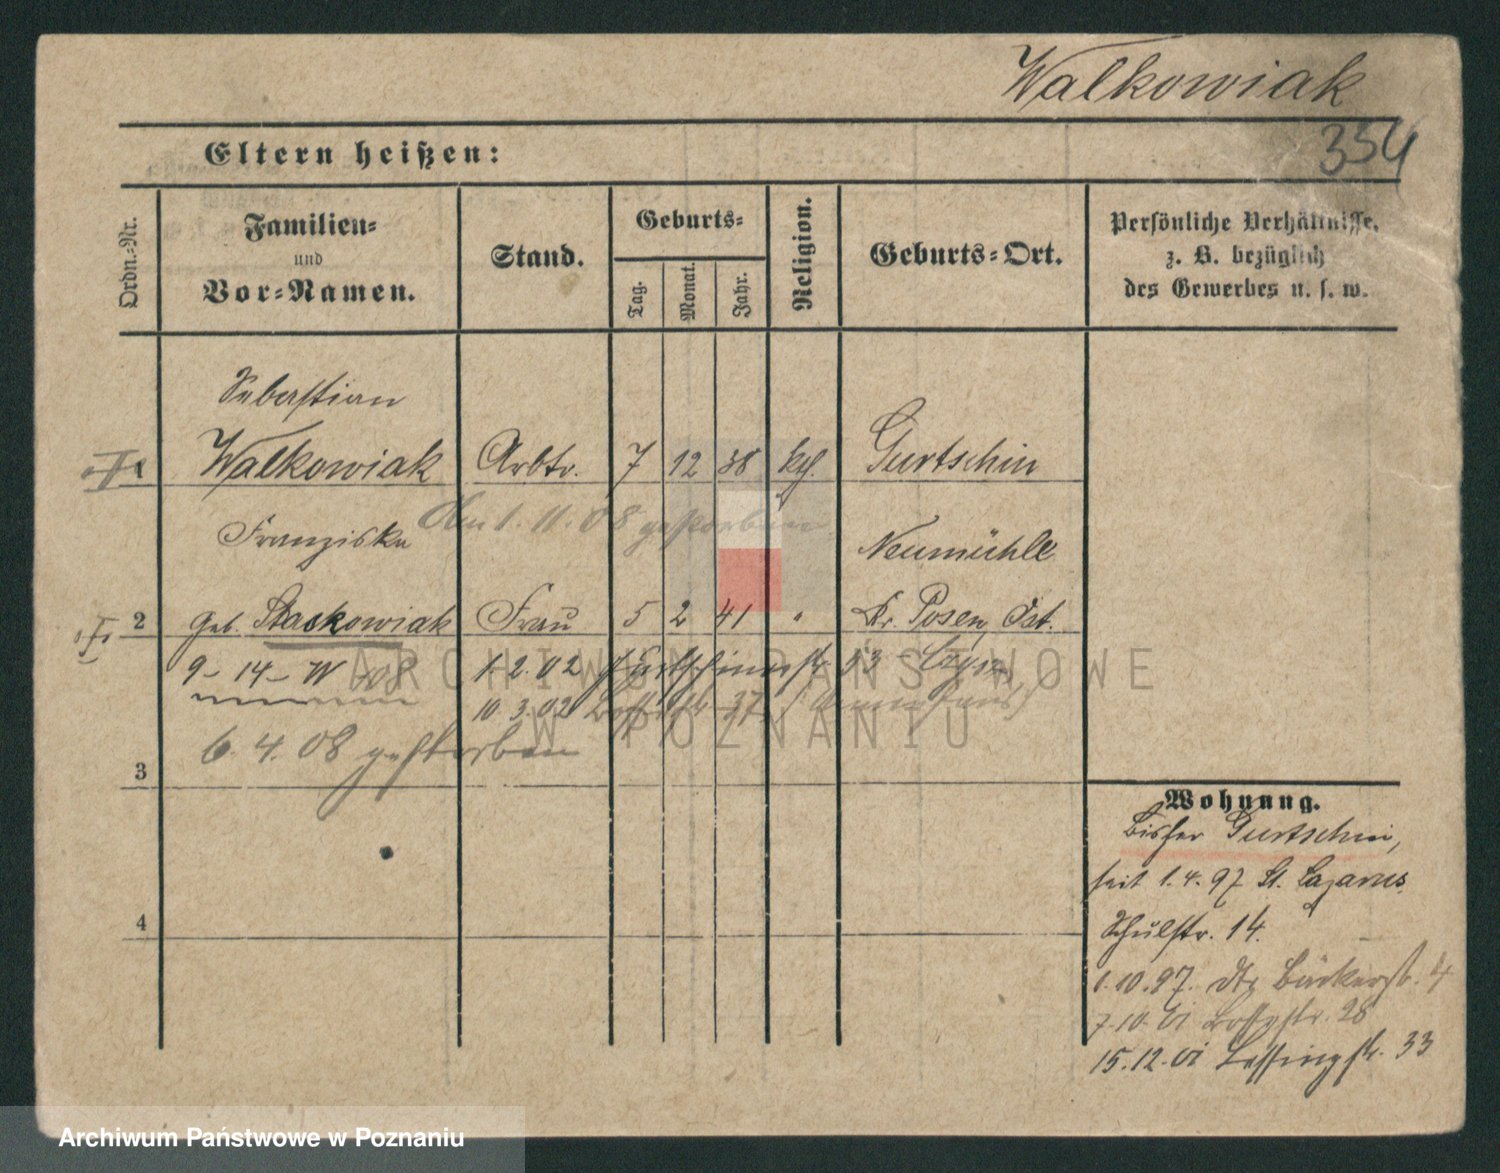 Walkowiak
354
Eltern heißen:
Ordn.-Nr.
Familien-
und
Vor-Namen.
Stand.
Geburts-
Tag.
Monat.
Jahr.
Religion.
Geburts-Ort.
Persönliche Verhältnisse,
z. B. bezüglich
des Gewerbes u. s. w.
Sebastian
1 Walkowiak Arbtr. 7 12 38 kth. Gurtschin
Am 1. 11. 08 gestorben
Franziska Neumühle
2 geb. Staskowiak Frau 5 2 41 " Kr. Posen Ost.
9 - 14 - W 08 1.2.02 Gurtschinerstr. 23
10.3.02 37
6. 4. 08 gestorben
3
4
Wohnung.
Bisher Gurtschin,
seit 1.4.97 St. Lazarus
Schulstr. 14.
1.10.97. dto Bäckerstr. 4
7.10.01 28
15.12.01 Lessingstr. 33
ARCHIWUM PAŃSTWOWE
W POZNANIU
Archiwum Państwowe w Poznaniu